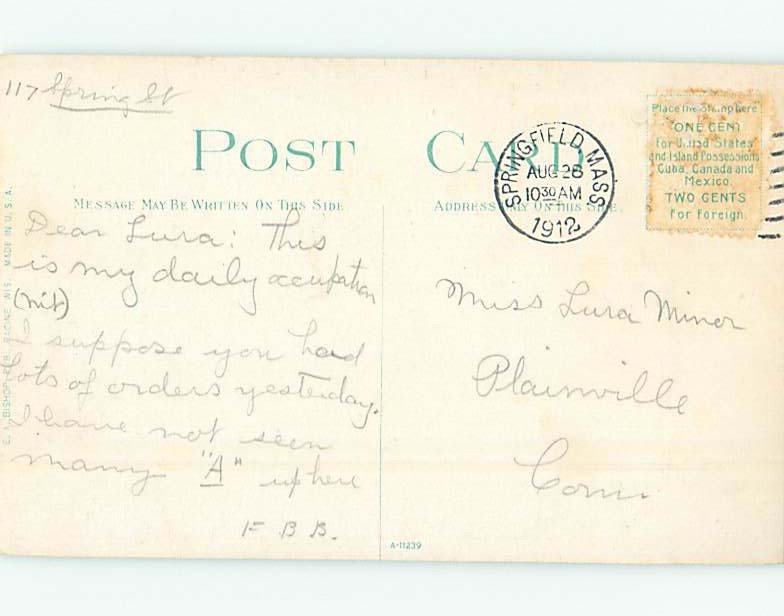 117 Spring St
POST CARD
MESSAGE MAY BE WRITTEN ON THIS SIDE
ADDRESS ONLY ON THIS SIDE.
SPRINGFIELD, MASS
AUG 28
10 30 AM
1912
Place the Stamp here
ONE CENT
for United States
and Island Possessions
Cuba, Canada and
Mexico.
TWO CENTS
for Foreign.
Dear Lura: This
is my daily occupation
(nit)
I suppose you had
lots of orders yesterday.
I have not seen
many "A" up here
F B B.
Miss Lura Minor
Plainville
Conn.
E. A. BISHOP, PUB. RACINE, WIS. MADE IN U.S.A.
A-11239